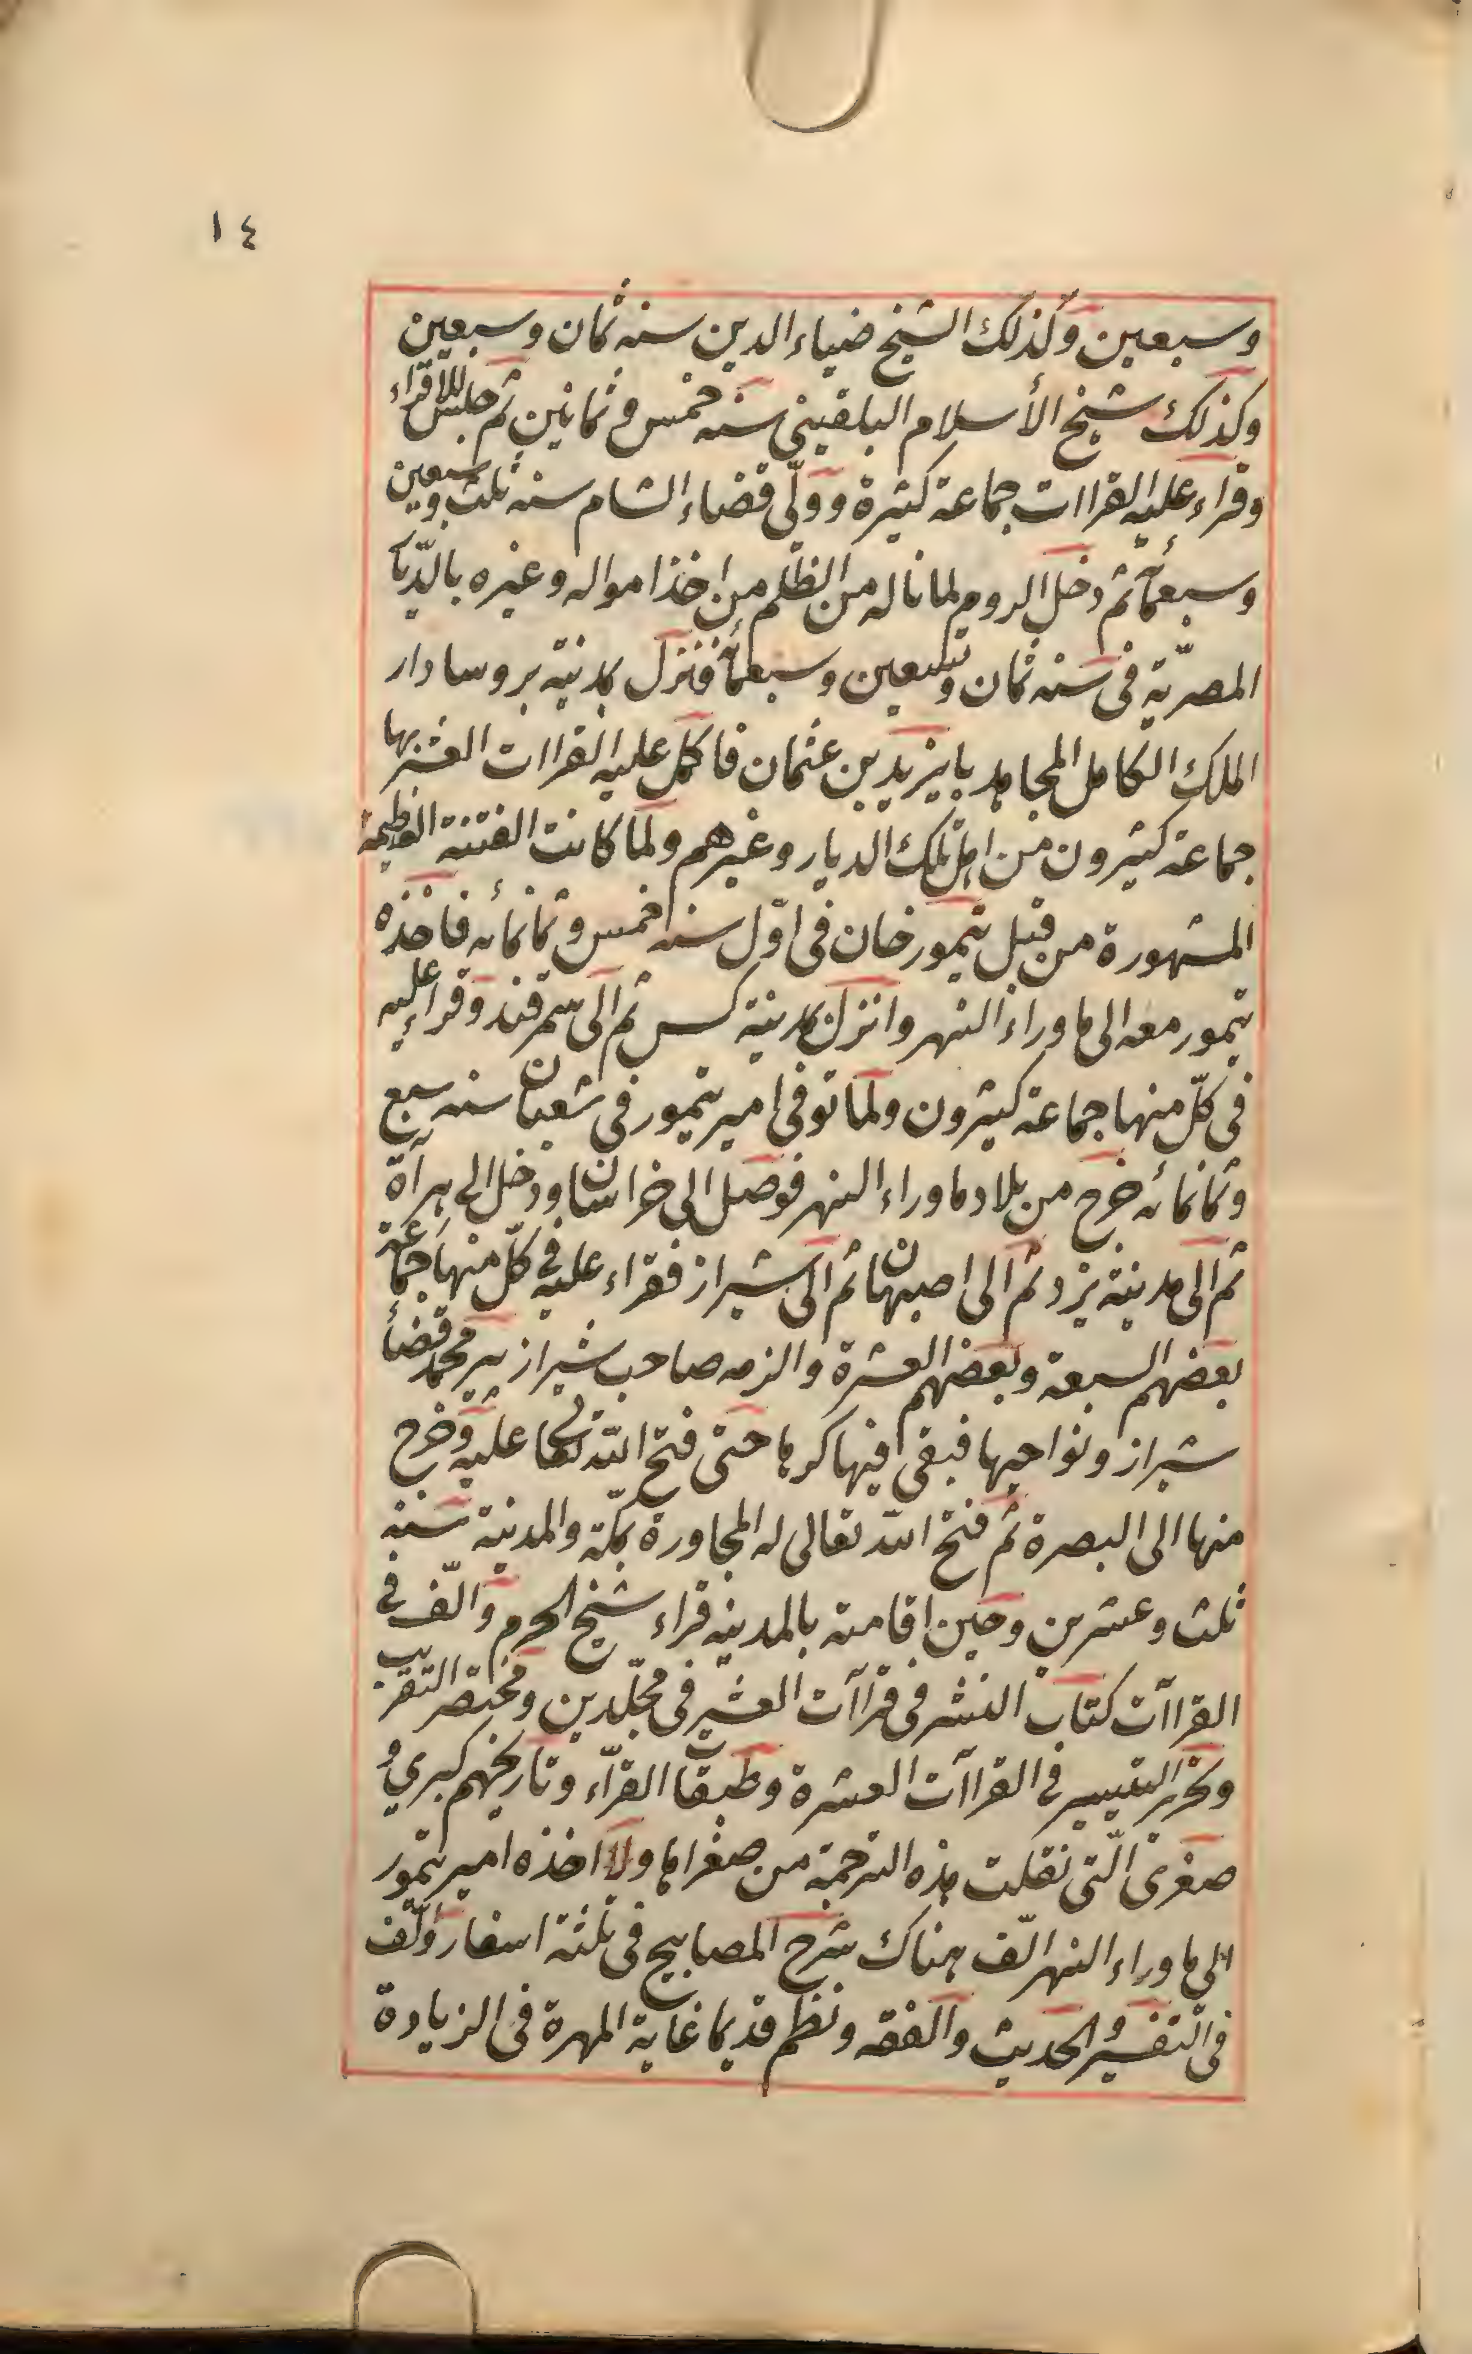 ١٤
وسبعين وكذلك الشيخ ضياء الدين سنه ثمان وسبعين
وكذلك شيخ الأسلام البلقينى سنه خمس وثمانين ثم جلس للاقراء
وقراء عليه القراات جماعة كثيرة وولّى قضاء الشام سنه ثلث وتسعين
وسبعمائة ثم دخل الروم لما ناله من الظلم من اخذ امواله وغيره بالدّيار
المصريّة فى سنه ثمان وتسعين وسبعمائة فنزل بمدينة بروسا دار
الملك الكامل المجاهد بايزيد بن عثمان فاكمل عليه القراات العشر بها
جماعة كثيرون من اهل تلك الديار وغيرهم ولما كانت الفتنة العظيمة
المشهورة من قبل تيمور خان فى اوّل سنه خمس وثمانمائه فاخذه
تيمور معه الى ماوراء النهر وانزل بمدينة كس ثم الى سمرقند وقراء عليه
فى كلّ منها جماعة كثيرون ولما توفى امير تيمور فى شعبان سنه سبع
وثمانمائه خرج من بلاد ماوراء النهر فوصل الى خراسان ودخل الى هرآة
ثم الى مدينة يزد ثم الى اصبهان ثم الى شيراز فقراء عليه فى كلّ منها جماعة
بعضهم السبعة وبعضهم العشرة والزمه صاحب شيراز پير محمد قضاء
شيراز ونواحيها فبقى فيها كرها حتى فتح الله تعالى عليه وخرج
منها الى البصرة ثم فتح الله تعالى له المجاورة بمكّة والمدينة سنه
ثلث وعشرين وحين اقامته بالمدينه قراء شيخ الحرم والّف فى
القراآت كتاب النشر فى قراآت العشر فى مجلّدين ومختصر التقريب
وتحرير التيسير فى القراآت العشرة وطبقات القرّاء وتاريخهم كبرى و
صغرى الّتى نقلت هذه الترجمة من صغراها ولما اخذه امير تيمور
الى ماوراء النهر الّف هناك شرح المصابيح فى ثلثة اسفار وألّف
فى التفسير والحديث والفقه ونظم قديما غاية المهرة فى الزيادة